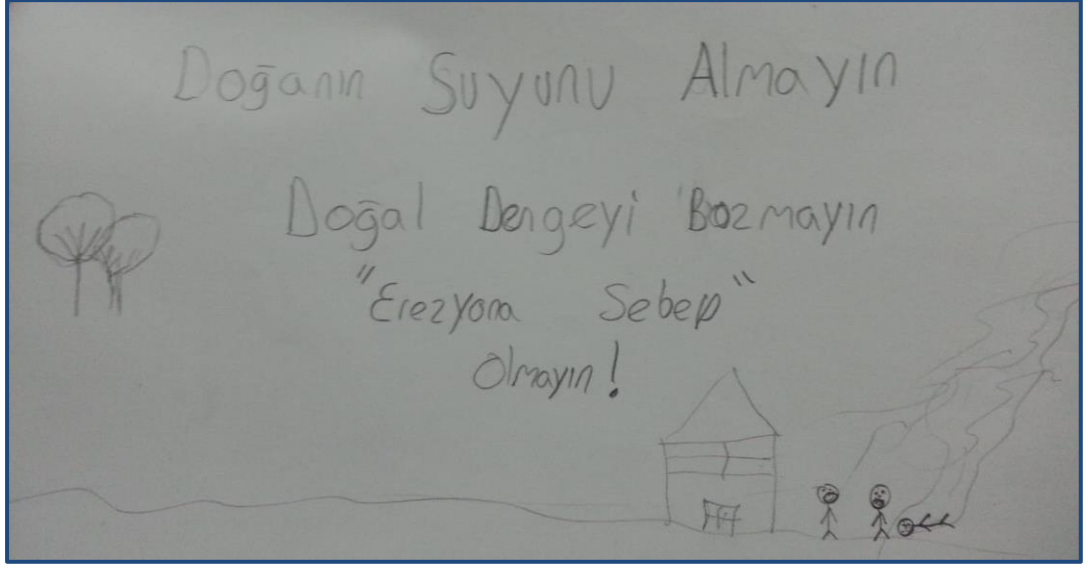 Doğanın Suyunu Almayın
Doğal Dengeyi Bozmayın
"Erezyona Sebep"
Olmayın!